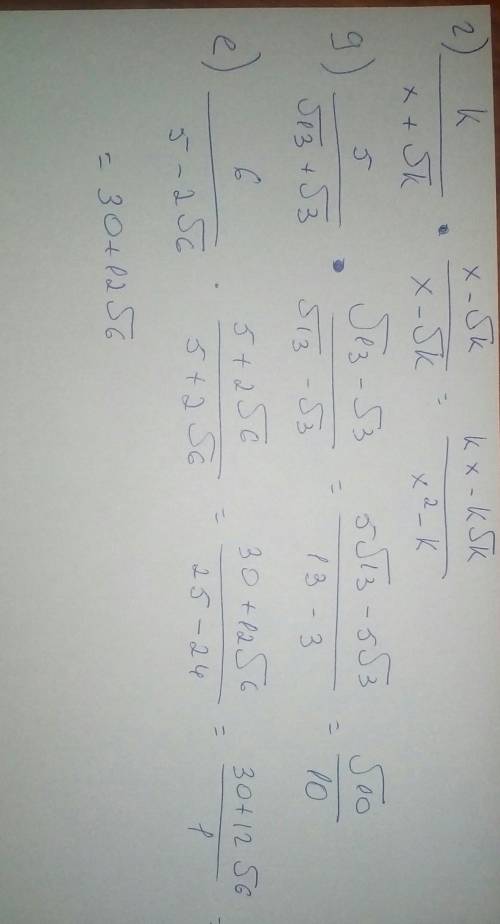 г) k / (x + √k) · (x - √k) / (x - √k) = (kx - k√k) / (x² - k)
д) 5 / (√13 + √3) · (√13 - √3) / (√13 - √3) = (5√13 - 5√3) / (13 - 3) = √10 / 10
е) 6 / (5 - 2√6) · (5 + 2√6) / (5 + 2√6) = (30 + 12√6) / (25 - 24) = (30 + 12√6) / 1 =
= 30 + 12√6